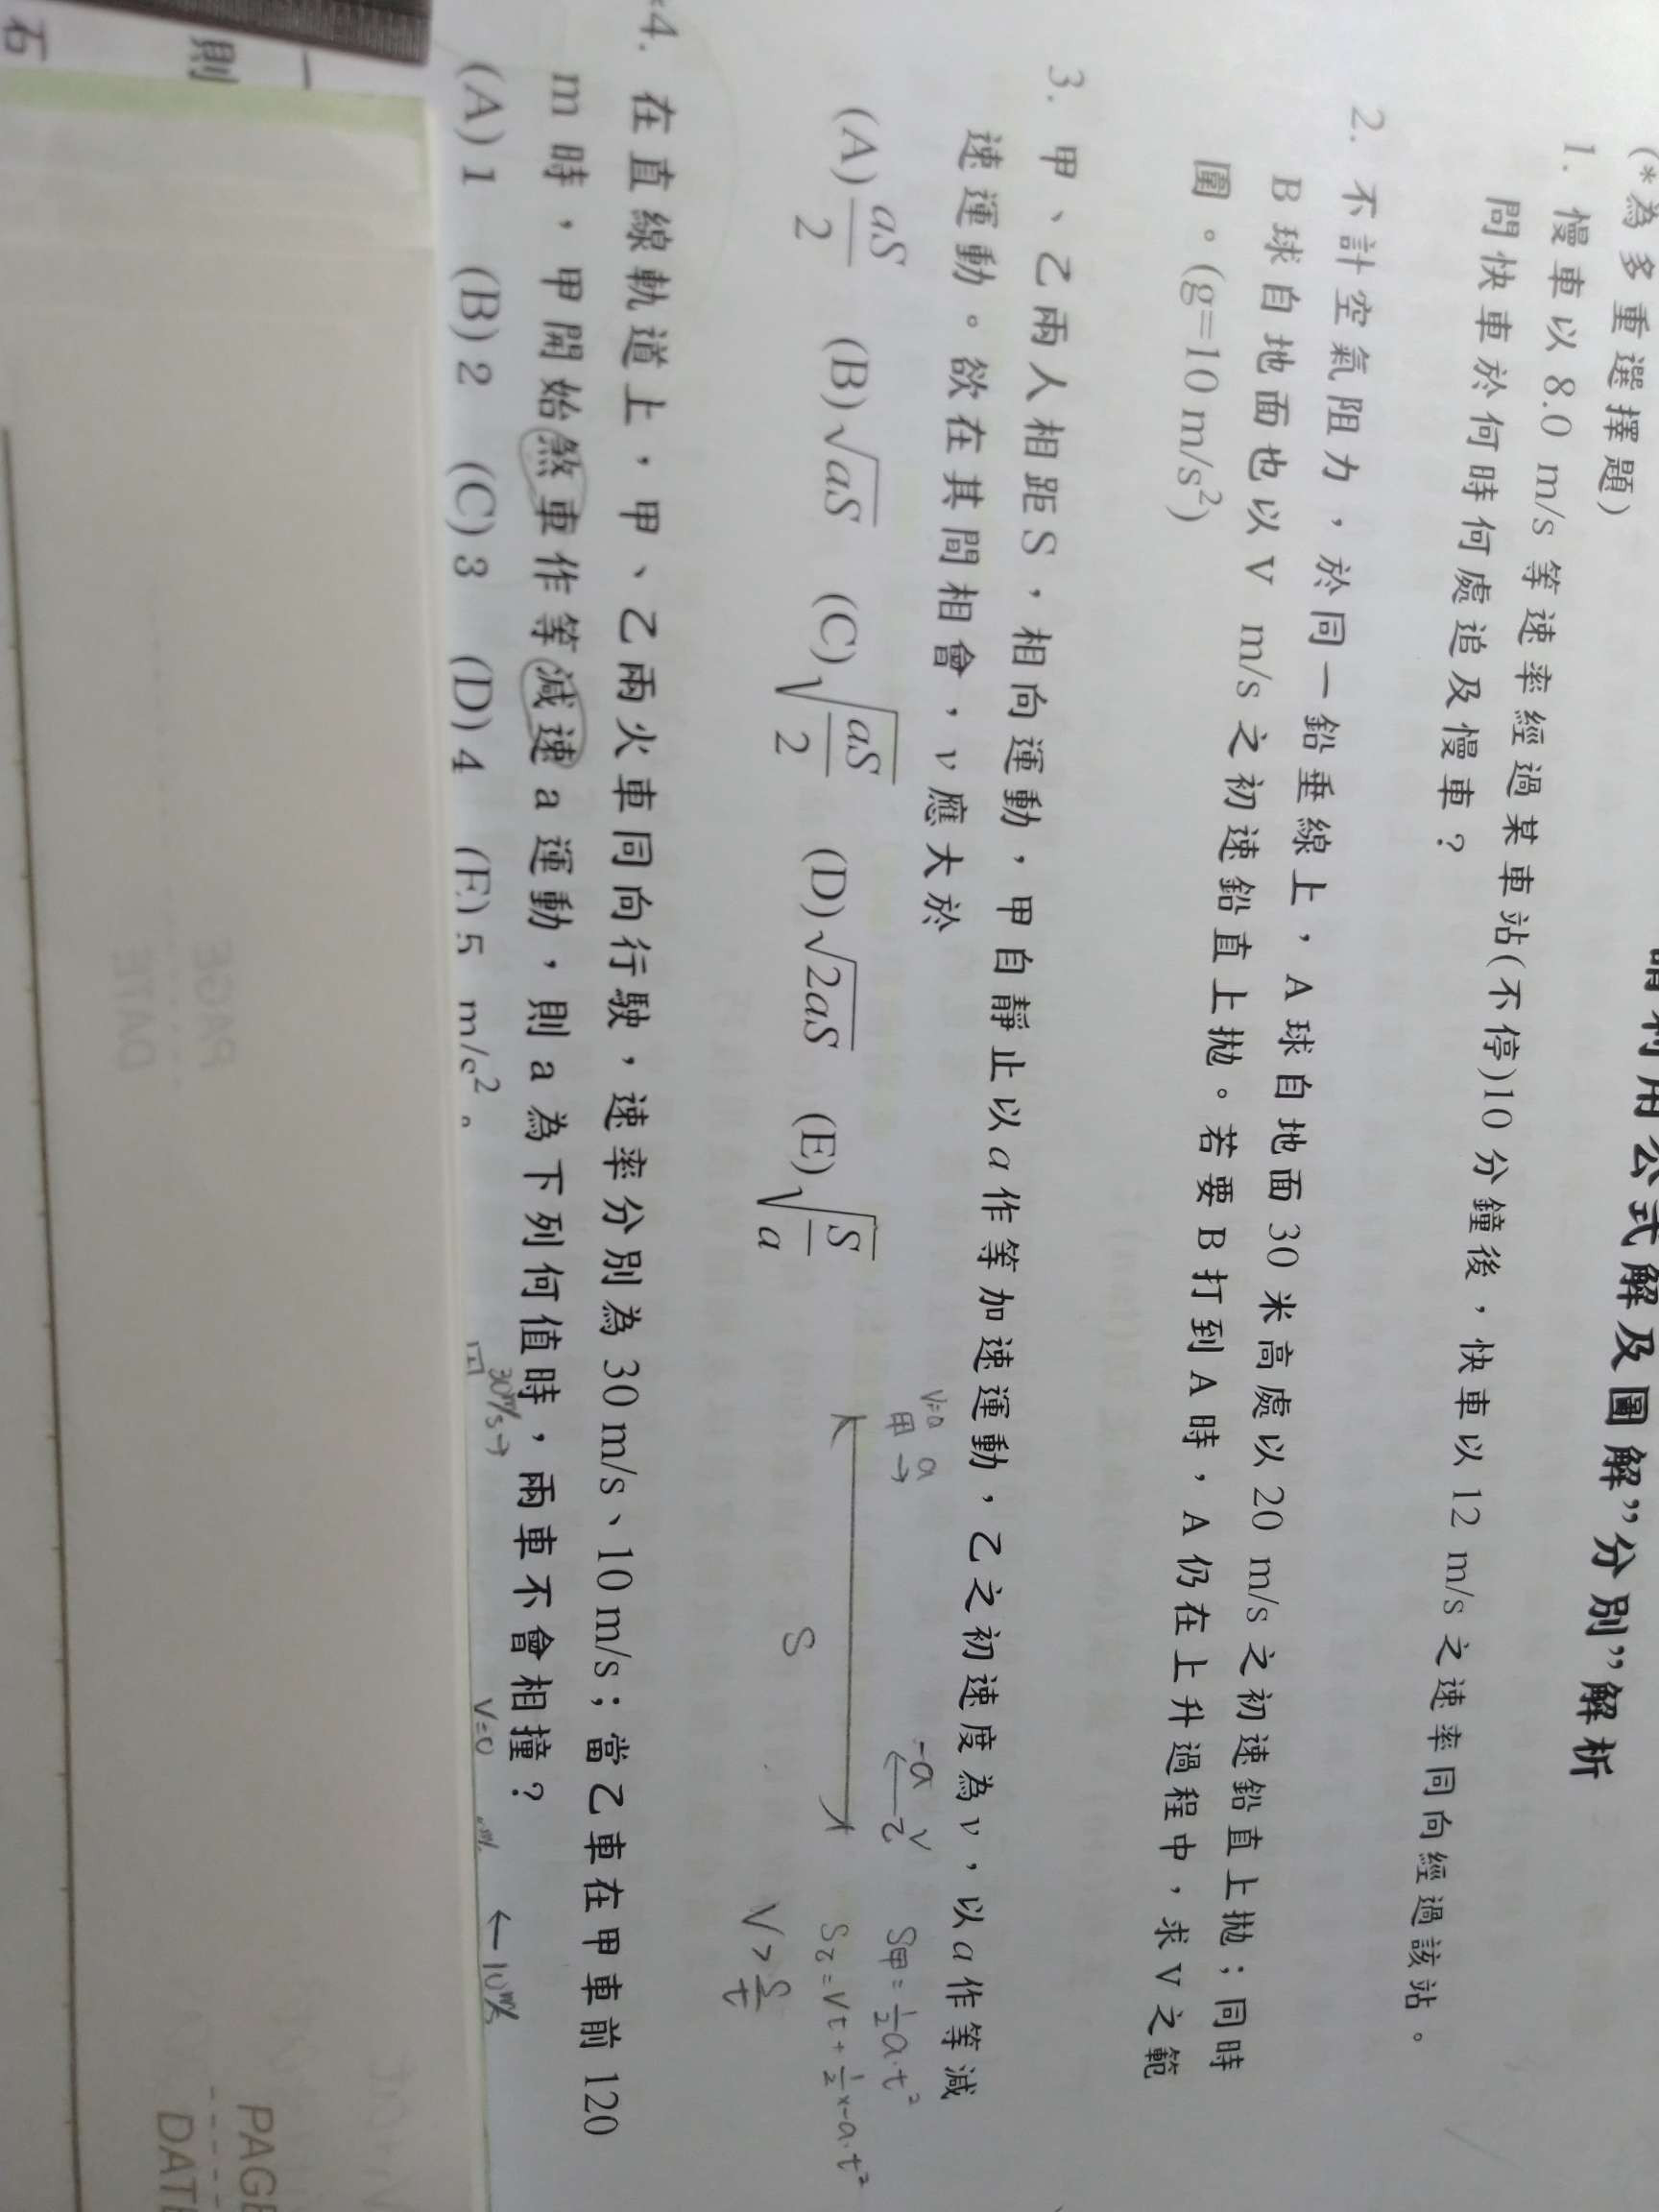 請利用公式解及圖解”分別”解析
(*為多重選擇題)
1. 慢車以 8.0 m/s 等速率經過某車站(不停)10 分鐘後，快車以 12 m/s 之速率同向經過該站。
問快車於何時何處追及慢車？
2. 不計空氣阻力，於同一鉛垂線上，A 球自地面 30 米高處以 20 m/s 之初速鉛直上拋；同時
B 球自地面也以 V m/s 之初速鉛直上拋。若要 B 打到 A 時，A 仍在上升過程中，求 V 之範
圍。(g=10 m/s²)
3. 甲、乙兩人相距 S，相向運動，甲自靜止以 a 作等加速運動，乙之初速度為 v，以 a 作等減
速運動。欲在其間相會，v 應大於
(A) aS/2 (B) √aS (C) √(aS/2) (D) √2aS (E) √(S/a)
V=0 a
甲→
-a v
←乙
S
S甲 = ½a·t²
S乙 = Vt + ½×-a·t²
V > S/t
*4. 在直線軌道上，甲、乙兩火車同向行駛，速率分別為 30 m/s、10 m/s；當乙車在甲車前 120
m 時，甲開始煞車作等減速 a 運動，則 a 為下列何值時，兩車不會相撞？
(A) 1 (B) 2 (C) 3 (D) 4 (E) 5 m/s²。
30m/s→
V=0
←10m/s
則
石
PAGE
DATE
PAGE
DATE